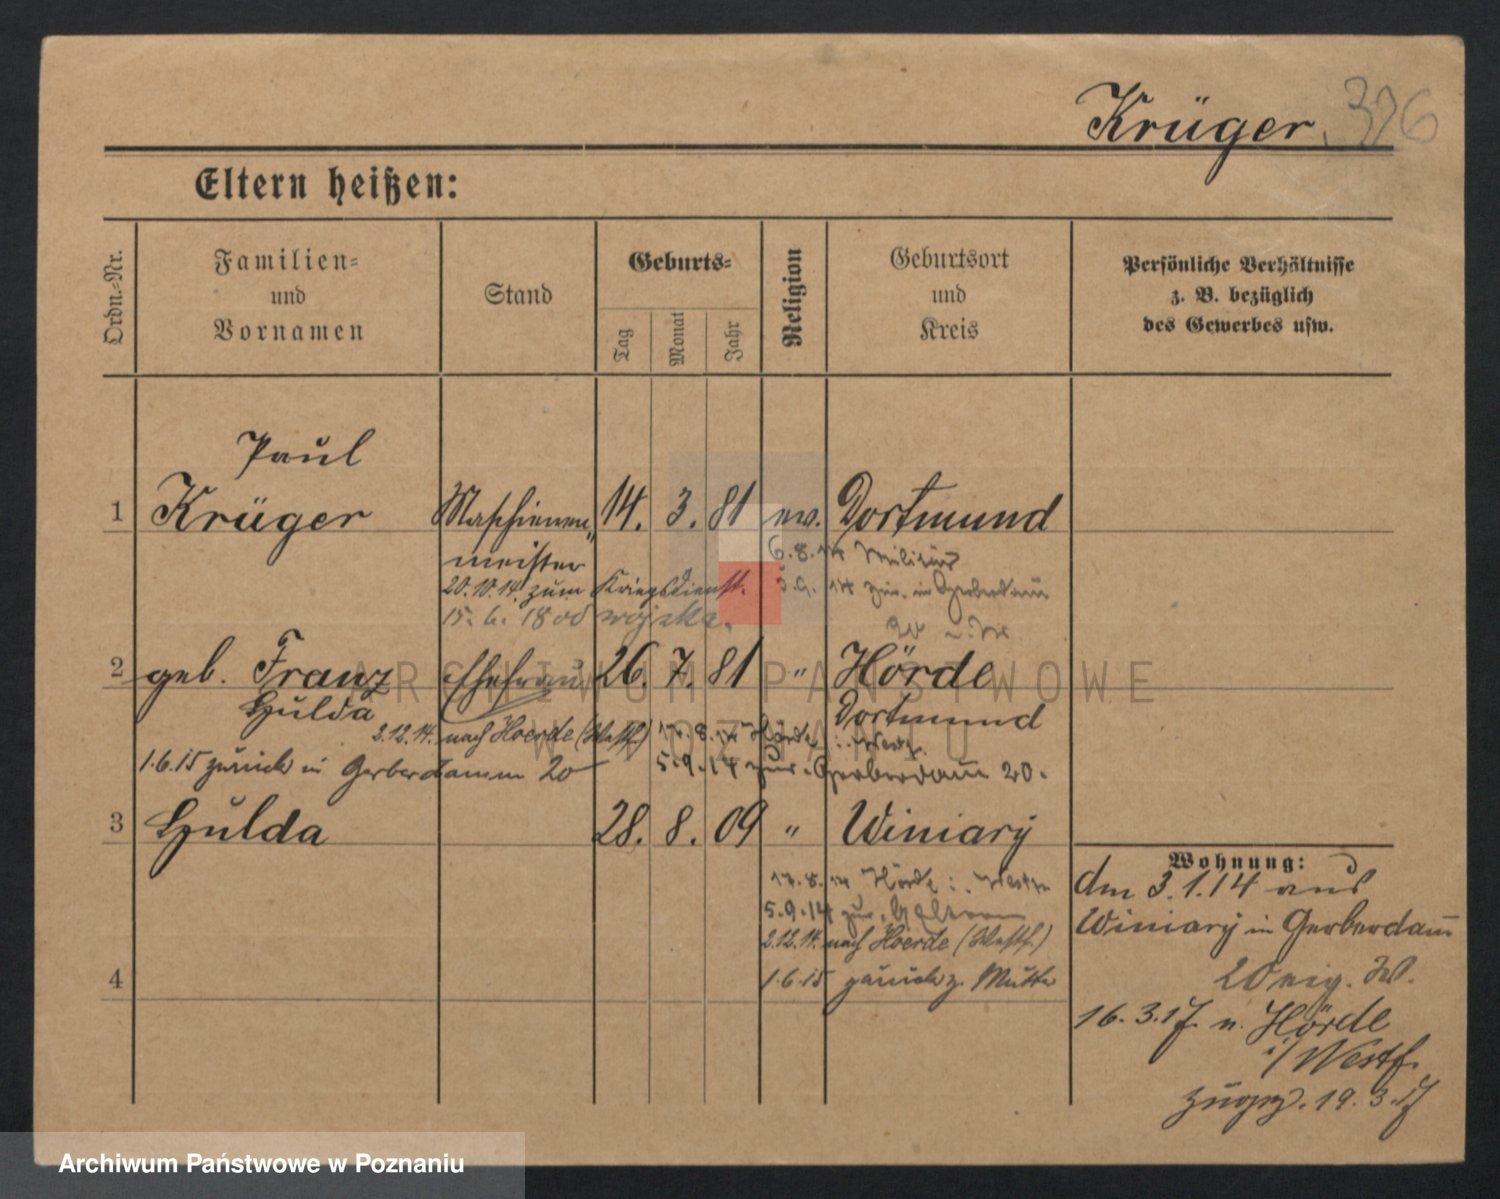 Krüger. 326
Eltern heißen:
Ordn.-Nr.
Familien-
und
Vornamen
Stand
Geburts-
Tag
Monat
Jahr
Religion
Geburtsort
und
Kreis
Persönliche Verhältnisse
z. B. bezüglich
des Gewerbes usw.
Paul
1 Krüger Maschienen- 14. 3. 81 ev. Dortmund
meister 6.8.14 Militär
20.10.14. zum Kriegsdienst. 5.9.14 zur. in Gerberdam
15. 6. 18 od wojska. 20
2 geb. Franz Ehefrau 26. 7. 81 " Hörde
Hulda Dortmund
2.12.14. nach Hoerde (Westf.) 17.8.14 Hörde i. Westf.
1.6.15 zurück in Gerberdamm 20 5.9.14 zur. Gerberdam 20.
3 Hulda 28. 8. 09 " Winiary
17.8.14 Hörde i. Westf.
5.9.14 zur. Eltern
2.12.14. nach Hoerde (Westf.)
1.6.15 zurück z. Mutter
4
Wohnung:
dm 3.1.14 aus
Winiary in Gerberdam
20 eig. W.
16.3.17. n. Hörde
i/Westf.
19.3.17
ARCHIWUM PAŃSTWOWE
W POZNANIU
Archiwum Państwowe w Poznaniu